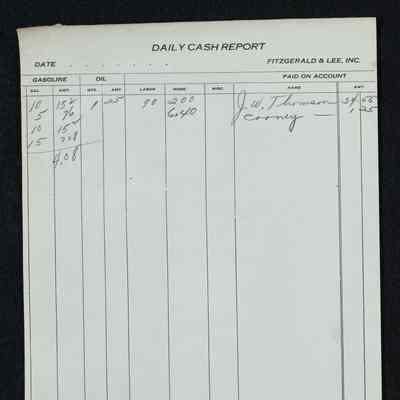 DAILY CASH REPORT
DATE . . . . . . . FITZGERALD & LEE, INC.
GASOLINE OIL PAID ON ACCOUNT
GAL. AMT. QTS. AMT. LABOR WORK MISC. NAME AMT.
10 15 1 25 90 200 J. W. Thomson
5 76 640 Cooney — 1 25
10 15
15
4.08